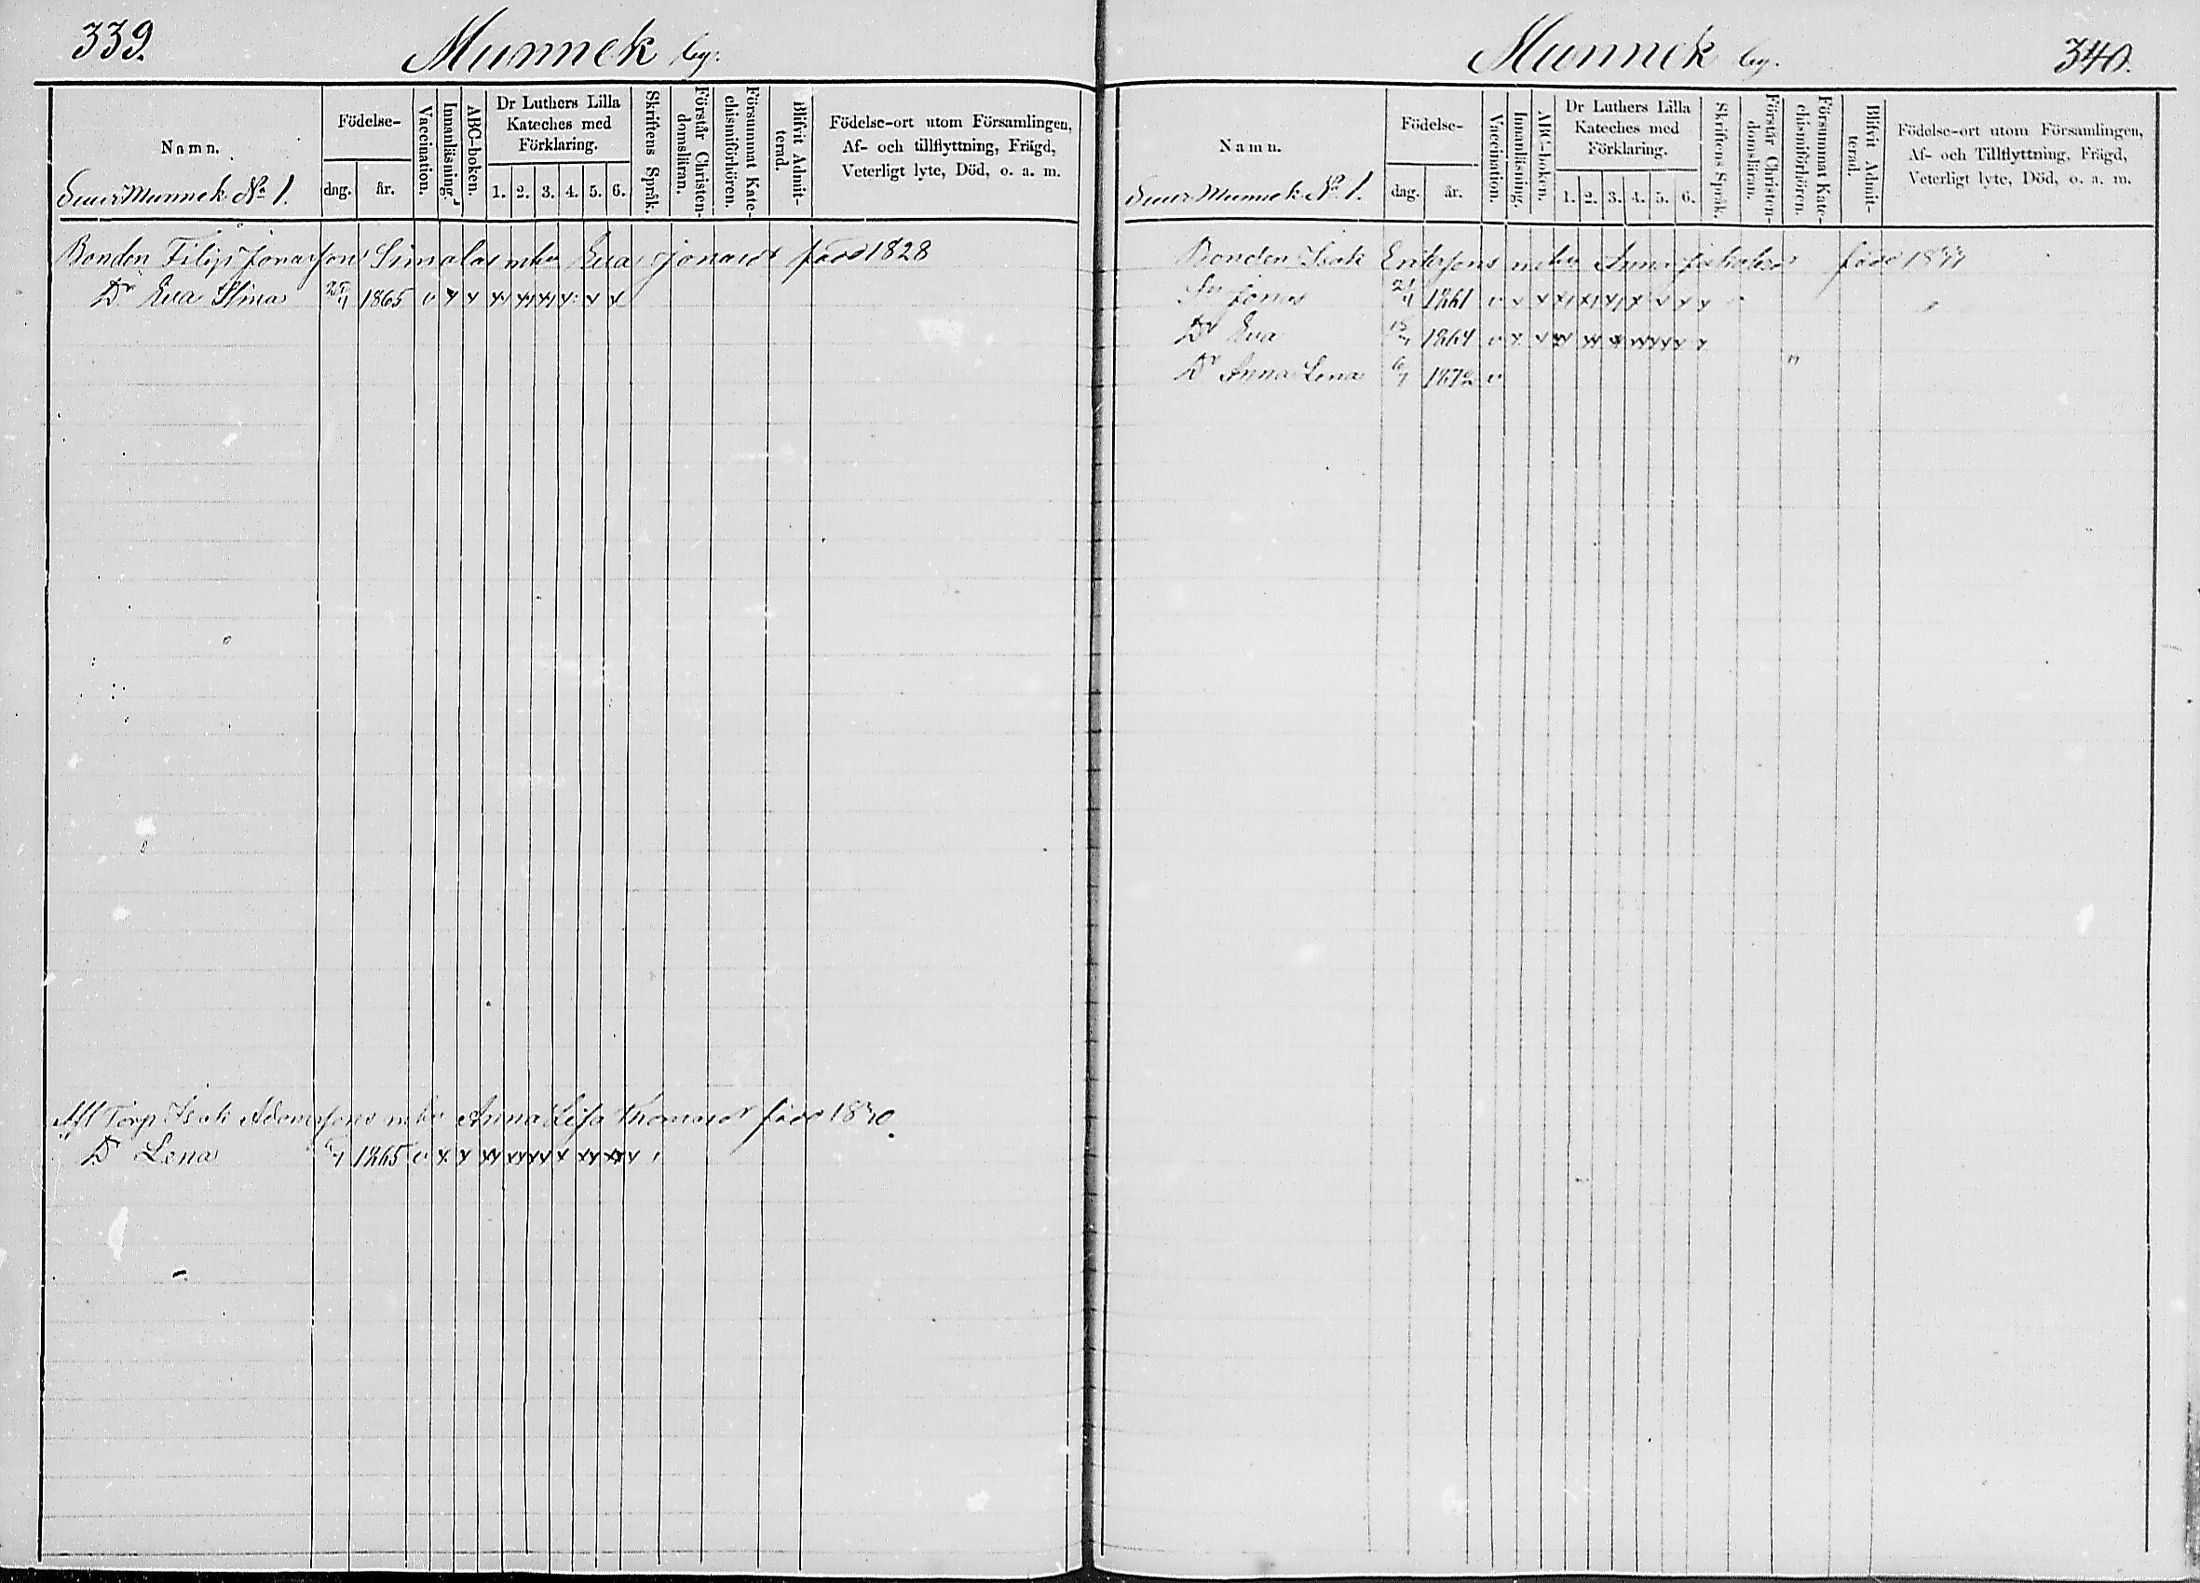 339.
Munnek by.
Namn.
Suur Munnek No 1.
Födelse-
dag.
år.
Vaccination.
Innanläsning.
ABC-boken.
Dr Luthers Lilla
Kateches med
Förklaring.
1. 2. 3. 4. 5. 6.
Skriftens Språk.
Förstår Christen-
domsläran.
Försummat Kate-
chismiförhören.
Blifvit Admit-
terad.
Födelse-ort utom Församlingen,
Af- och tillflyttning, Frägd,
Veterligt lyte, Död, o. a. m.
Bonden Filip Jonasson Simolas m hu Eva Jonasdr född 1828
Dr Eva Stina 1865 v x x x x x x x x
Afl Torp Isak Adamssons m hu Anna Lisa Thomasdr född 1830.
Dr Lena 1865 v x x xx xx xx x xx xx x
Munnek by.
340.
Namn.
Suur Munnek No 1.
Födelse-
dag.
år.
Vaccination.
Innanläsning.
ABC-boken.
Dr Luthers Lilla
Kateches med
Förklaring.
1. 2. 3. 4. 5. 6.
Skriftens Språk.
Förstår Christen-
domsläran.
Försummat Kate-
chismiförhören.
Blifvit Admit-
terad.
Födelse-ort utom Församlingen,
Af- och Tillflyttning, Frägd,
Veterligt lyte, Död, o. a. m.
Bonden Isak Erikssons m hu Anna född
Sn Jonas 1861 v x x x x x x x x x
Dr Eva 1864 v x x xx xx x xx xx x x
Dr Anna Lena 1872 v